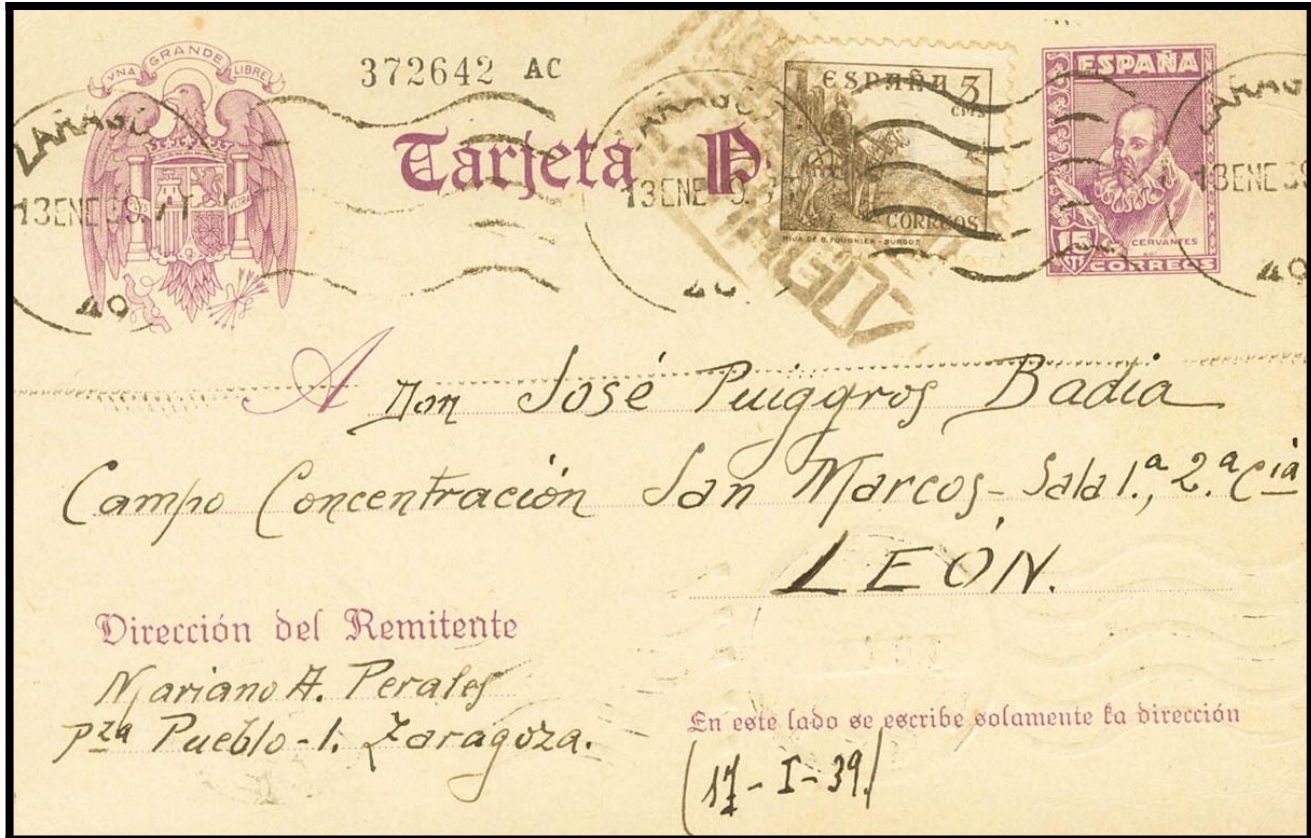 UNA GRANDE LIBRE
372642 AC
Tarjeta P
ESPAÑA 5 CMS
CORREOS
HIJA DE B. FOURNIER - BURGOS
ESPAÑA
15
CERVANTES
CORREOS
13 ENE 39. 7T
13 ENE
13 ENE 39
A Don José Puiggros Badia
Campo Concentración San Marcos - Sala 1.ª, 2.ª Cia
LEÓN.
Dirección del Remitente
Mariano A. Perales
Pza Pueblo - 1. Zaragoza.
En este lado se escribe solamente la dirección
(17 - I - 39.)